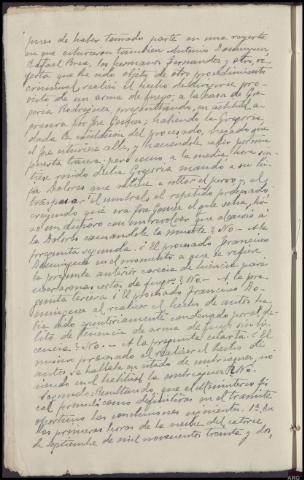 pues de haber tomado parte en una reyerta
en que estuvieron tambien Antonio Dominguez,
Rafael Perea, los hermanos Fernandez y otro, re-
yerta que ha sido objeto de otro procedimiento
criminal, realizó el hecho de dirigirse, pro-
visto de un arma de fuego, a la casa de Gre-
goria Rodriguez preguntando, en actitud a-
gresiva por José
dada la condicion del procesado, negado que
el se hallase alli, y haciendole
puesta
tiere ruido dicha Gregoria mando a su hi-
ja Dolores que saliese a soltar el perro y, al
traspasar el umbral, el repetido procesado,
creyendo que era José Gomez el que salia, hi-
zo un disparo con un revolver que alcanzó a
la Dolores causandole la muerte? No. - A la
pregunta segunda. ¿El procesado Francisco
Dominguez en el momento a que se refiere
la pregunta anterior carecia de licencia para
usar armas de fuego? No. - A la pre-
gunta tercera ¿El procesado Francisco Do-
minguez al realizar el hecho de autos ha-
bia sido ejecutoriamente condenado por el de-
lito de tenencia de arma de fuego sin li-
cencia? No. - A la pregunta cuarta ¿El
mismo procesado al realizar el hecho de
autos se hallaba en estado de embriaguez, no
siendo en el habitual la embriaguez? No.
Segundo: Resultando, que el Ministerio fis-
cal formuló como definitivas en el tramite
oportuno las conclusiones siguientes: 1ª. En
las primeras horas de la noche del catorce
de Septiembre de mil novecientos treinta y dos,